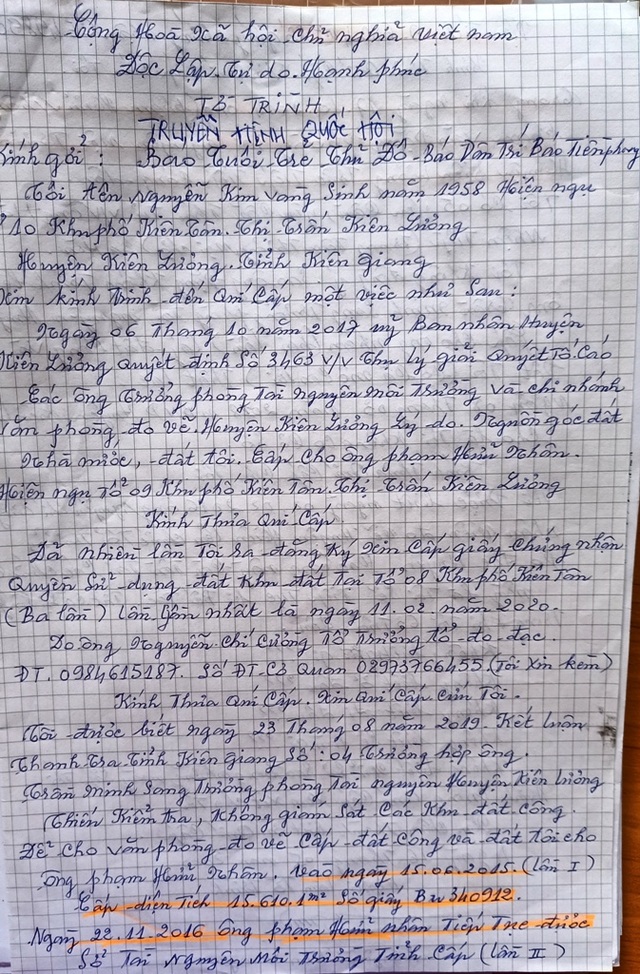 Cộng Hoà Xã hội chủ nghĩa Việt nam
Độc Lập. Tự do. Hạnh phúc
TỜ TRÌNH
TRUYỀN HÌNH QUỐC HỘI
Kính gởi: Báo Tuổi Trẻ Thủ Đô - Báo Dân Trí Báo Tiền phong
Tôi tên Nguyễn Kim Vang Sinh năm 1958 Hiện ngụ
10 Khu phố Kiên Tân. Thị Trấn Kiên Lương
Huyện Kiên Lương. Tỉnh Kiên Giang
Xin kính trình đến Quí Cấp một việc như sau:
Ngày 06 Tháng 10 năm 2017 uỷ Ban nhân Huyện
Kiên Lương Quyết định Số 3463 v/v Thụ lý giải Quyết Tố Cáo
Các ông Trưởng phòng Tài nguyên môi Trường và chi nhánh
Văn phòng đo vẽ Huyện Kiên Lương Lý do. Nguồn gốc đất
Nhà nước, đất tôi. Cấp cho ông phạm Hữu Nhân.
Hiện ngụ Tổ 09 Khu phố Kiên Tân. Thị Trấn Kiên Lương
Kính Thưa Quí Cấp
Đã nhiều lần Tôi ra đăng Ký xin Cấp giấy chứng nhận
Quyền Sử dụng đất Khu đất Tại Tổ 08 Khu phố Kiên Tân
(Ba lần) lần gần nhất là ngày 11.02 năm 2020.
Do ông Nguyễn chí cường Tổ Trưởng tổ đo đạc.
ĐT. 0984615187. Số ĐT. Cơ Quan 02973766455. (Tôi Xin kèm)
Kính Thưa Quí Cấp. Xin Quí Cấp cứu Tôi.
Tôi được biết ngày 23 Tháng 08 năm 2019. Kết luận
Thanh Tra Tỉnh Kiên Giang Số: 04 Trường hợp ông.
Trần minh Sang Trưởng phòng Tài nguyên Huyện Kiên Lương
Thiếu Kiểm tra, Không giám Sát Các Khu đất công.
Để cho văn phòng đo vẽ cấp đất công và đất tôi cho
ông phạm Hữu Nhân. Vào ngày 15.06.2015. (lần I)
Cấp diện Tích 15.610.1m² Số giấy Bu 340912.
Ngày 22.11.2016 ông phạm Hữu nhân Tiếp Tục được
Sở Tài Nguyên Môi Trường Tỉnh Cấp (lần II)